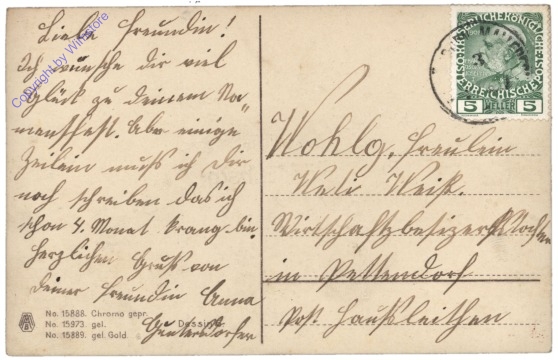 Liebe Freundin!
Ich wünsche dir viel
Glück zu deinem Na„
mensfest. Aber einige
Zeilein muhs ich Dir
noch schreiben das ich
schon 4. Monat krang bin.
Herzlichen Gruß von
deiner Freundin Anna
Copyright by Wikstore
No. 15888. Chromo gepr.
No. 15973. gel. Dessin
No. 15889. gel. Gold.
5 HELLER 5
Wohlg. Freulein
Weiß.
Wirtschaftzbesizers Tochter
in Pettendorf
Post Haußleithen